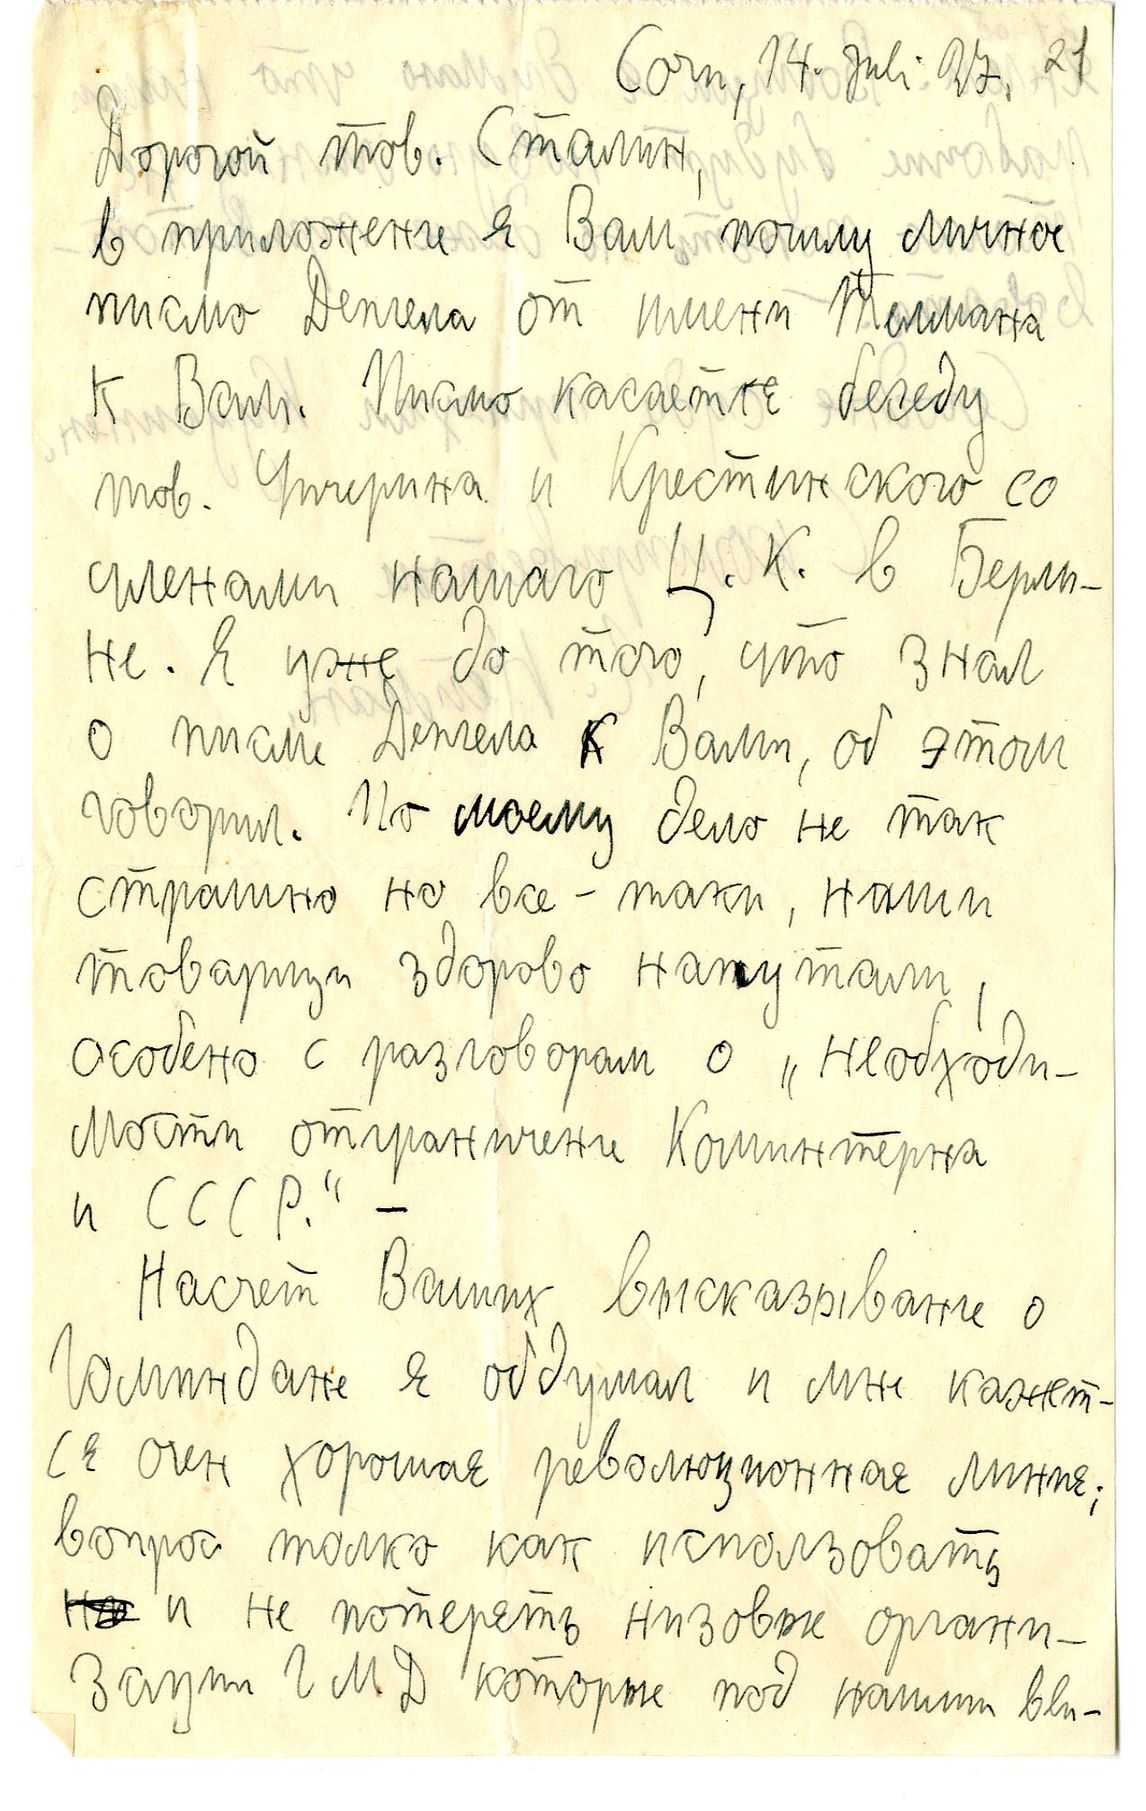 Сочи, 14. Juli 27. 21
Дорогой тов. Сталин,
в приложение я Вам пошлу личное
писмо Денгела от имени Телмана
к Вам. Писмо касается беседу
тов. Чичерина и Крестинского со
членами нашаго Ц. К. в Берли-
не. Я уже до того, что знал
о писме Денгела к Вами, об этом
говорил. По моему дело не так
страшно но все-таки, наши
товарищи здорово напутали,
особено с разговорам о „необходи-
мости отграничение Коминтерна
и СССР.“ –
Насчет Ваших высказывание о
Гоминдане я обдумал и мне кажет-
ся очен хорошая революционная линия;
вопрос толко как использовать
и не потерять низовые органи-
зации ГМД которые под нашим вли-